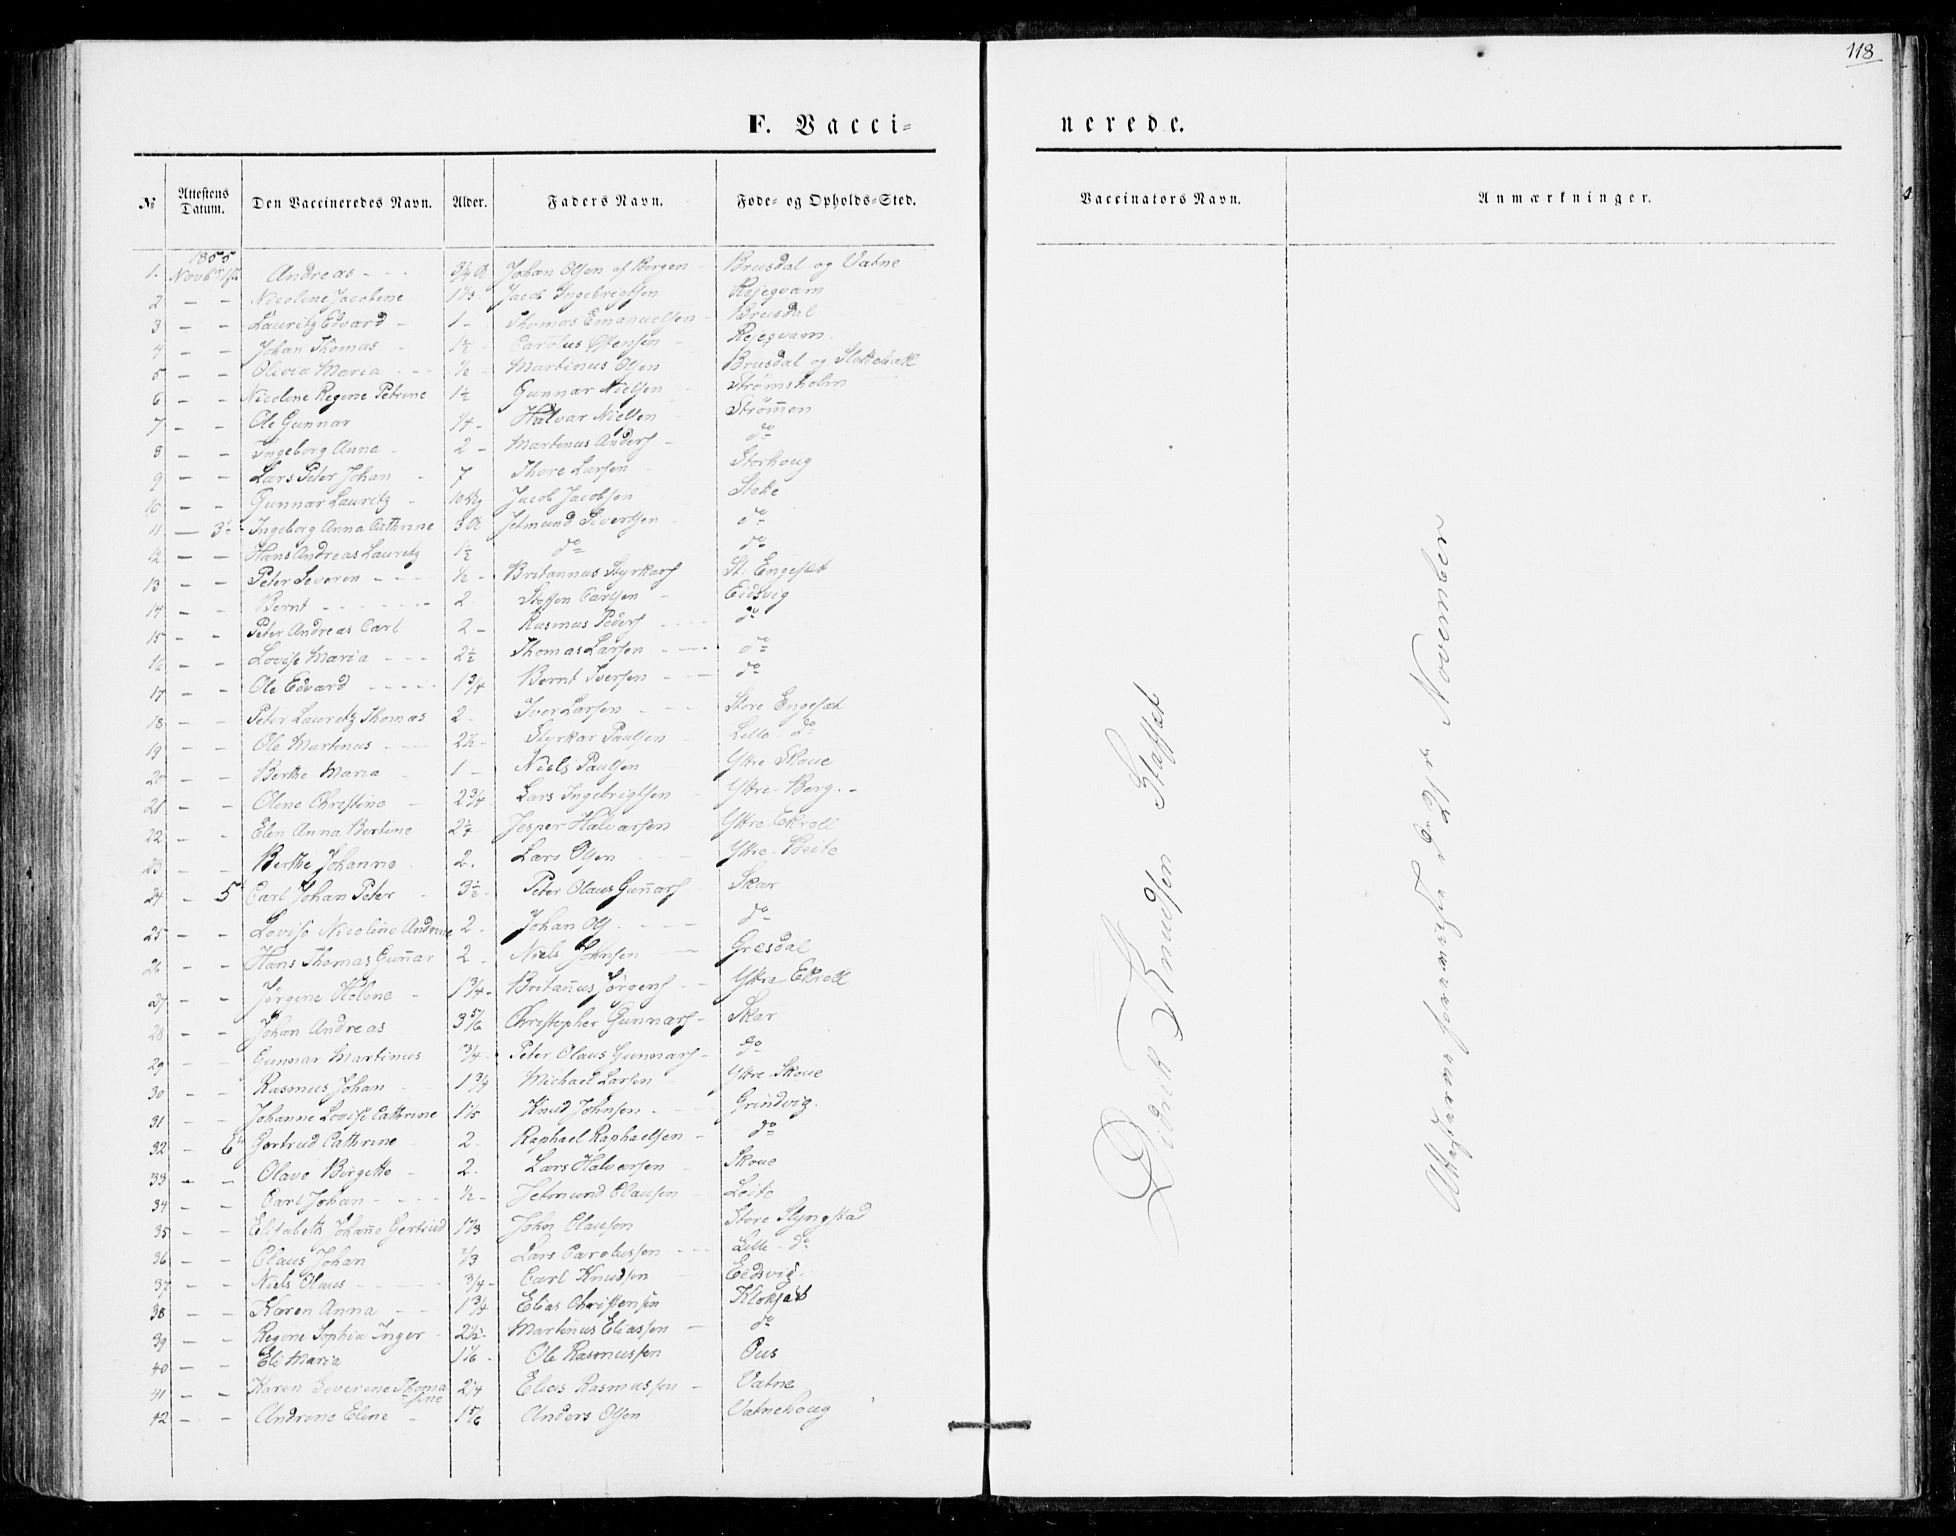 118
F. Vacci-
nerede.
№ Attestens Datum. Den Vaccineredes Navn. Alder. Faders Navn. Føde- og Opholds-Sted. Vaccinators Navn. Anmærkninger.
1855
1. Novbr Andreas - - - 3/4 A Johan Olsen af Bergen - Brusdal og Vatne
2 - - Nicoline Jacobine 1 1/3 Jacob Ingebrigtsen Rejegvam
3 - - Lauritz Edvard - 1 - Thomas Emanuelsen - Brusdal
4 - - Johan Thomas - 1 1/2 - Carolus Østensen - Rejegvam.
5 - - Olivia Maria - - - 1/2 - Martinus Olsen Brusdal og Slettebak
6 - - Nicoline Regine Petrine 1 1/2 Gunnar Nielsen - Strømsholm
7 - - Ole Gunnar 1/4 - Halvar Nielsen - Strøm̄en
8 - - Ingeborg Anna - 2 - Martinus Anders - do
9 - - Lars Peter Johan - 7 Thore Larsen - Storhoug
10 - - Gunnar Lauritz - Jacob Jacobsen Slette
11 — 3 Ingeborg Anna Cathrine 3 A Jetmund Sivertsen - do
12 - - Hans Andreas Lauritz 1 1/2 do do
13 - - Peter Severin - - - 1/2 - Britannus Styrkars St. Engeset
14 - - Bernt - - - - - - 2 Steffen Carlsen - Eidsvig
15 - - Peter Andreas Carl 2 - Rasmus Peders - - - - do
16 - - Lovise Maria - - - 2 1/2 Thomas Larsen - - - do
17 - - Ole Edvard - - - - - 1 3/4 Bernt Iversen - - - do
18 - - Peter Lauritz Thomas 2 - Iver Larsen - - - Store Engeset
19 - - Ole Martinus - - - 2 1/2 - Styrkar Paulsen - Lille - do
20 - - Berthe Maria - 1 - Niels Paulsen Yttre Skoue
21 - - Oline Christine - 2 3/4 - Lars Ingebrigtsen - Yttre-Berg. -
22 - - Elen Anna Bertine 2 1/4 - Jesper Halvarsen Yttre-Ekroll
23 - - Berthe Johanna . 2. Lars Olsen - - - Yttre-Leite
24 - 5 Carl Johan Peter - 3 1/2 - Peter Olaus Gun̄ars - Skar
25 - - Lovise Nicoline Andrine 2 - Johan Ols. - - - - do
26 - - Hans Thomas Gun̄ar 2 - Niels Johnsen — Gresdal
27 - - Jørgine Helene - 1 3/4 - Britan̄us Jørgens - - Yttre-Ekroll
28 - - Johan Andreas 3 5/6 Christopher Gunnars - Skar
29 - - Gunnar Martinus 3/4 - Peter Olaus Gunnars - do
30 - - Rasmus Johan - 1 3/4 Michael Larsen - Yttre-Skoue
31 - - Johanne Lovise Cathrine 1 1/5 Knud Johnsen. - - Grindvig.
32 - 6 Gertrud Cathrine - 2 - Raphael Raphaelsen - do
33 - - Olave Birgitte - 2 - Lars Halvorsen - Skoue
34 - - Carl Johan - - - - 1/2 - Jetmund Clausen - Leite
35 - - Elisabeth Johan̄e Gertrud 1 1/3 John Clausen Store Slyngstad
36 - - Claus Johan 2/3 Lars Carolussen - - - Lille - do
37 - - Niels Olaus - - - - - 3/4 - Carl Knudsen - Eidsvig.
38 - - Karen Anna - - - 1 3/4 Elias Christensen Kloksæt
39 - - Regine Sophia Inger - 2 1/2 - Martinus Eliassen - do
40 - - Eli Maria 1 1/6 - Ole Rasmussen Øus
41 - - Karen Severine Thomasine 2 1/4 Elias Rasmussen - Vatne
42 - - Andrine Eline - 1 5/6 Anders Olsen Vatnehoug
Didrik Knudsen Stafset
Attesterne foreviiste d. 21de November